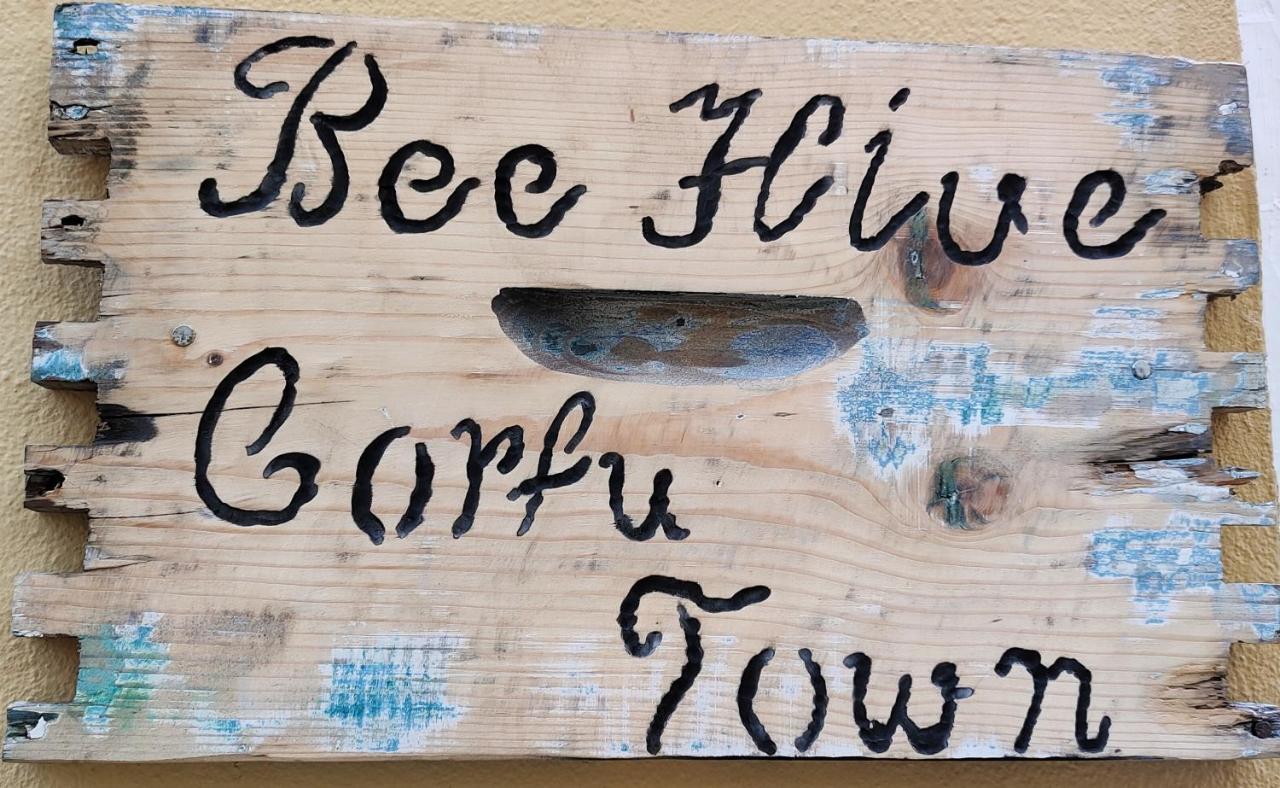 Bee Hive
Corfu
Town